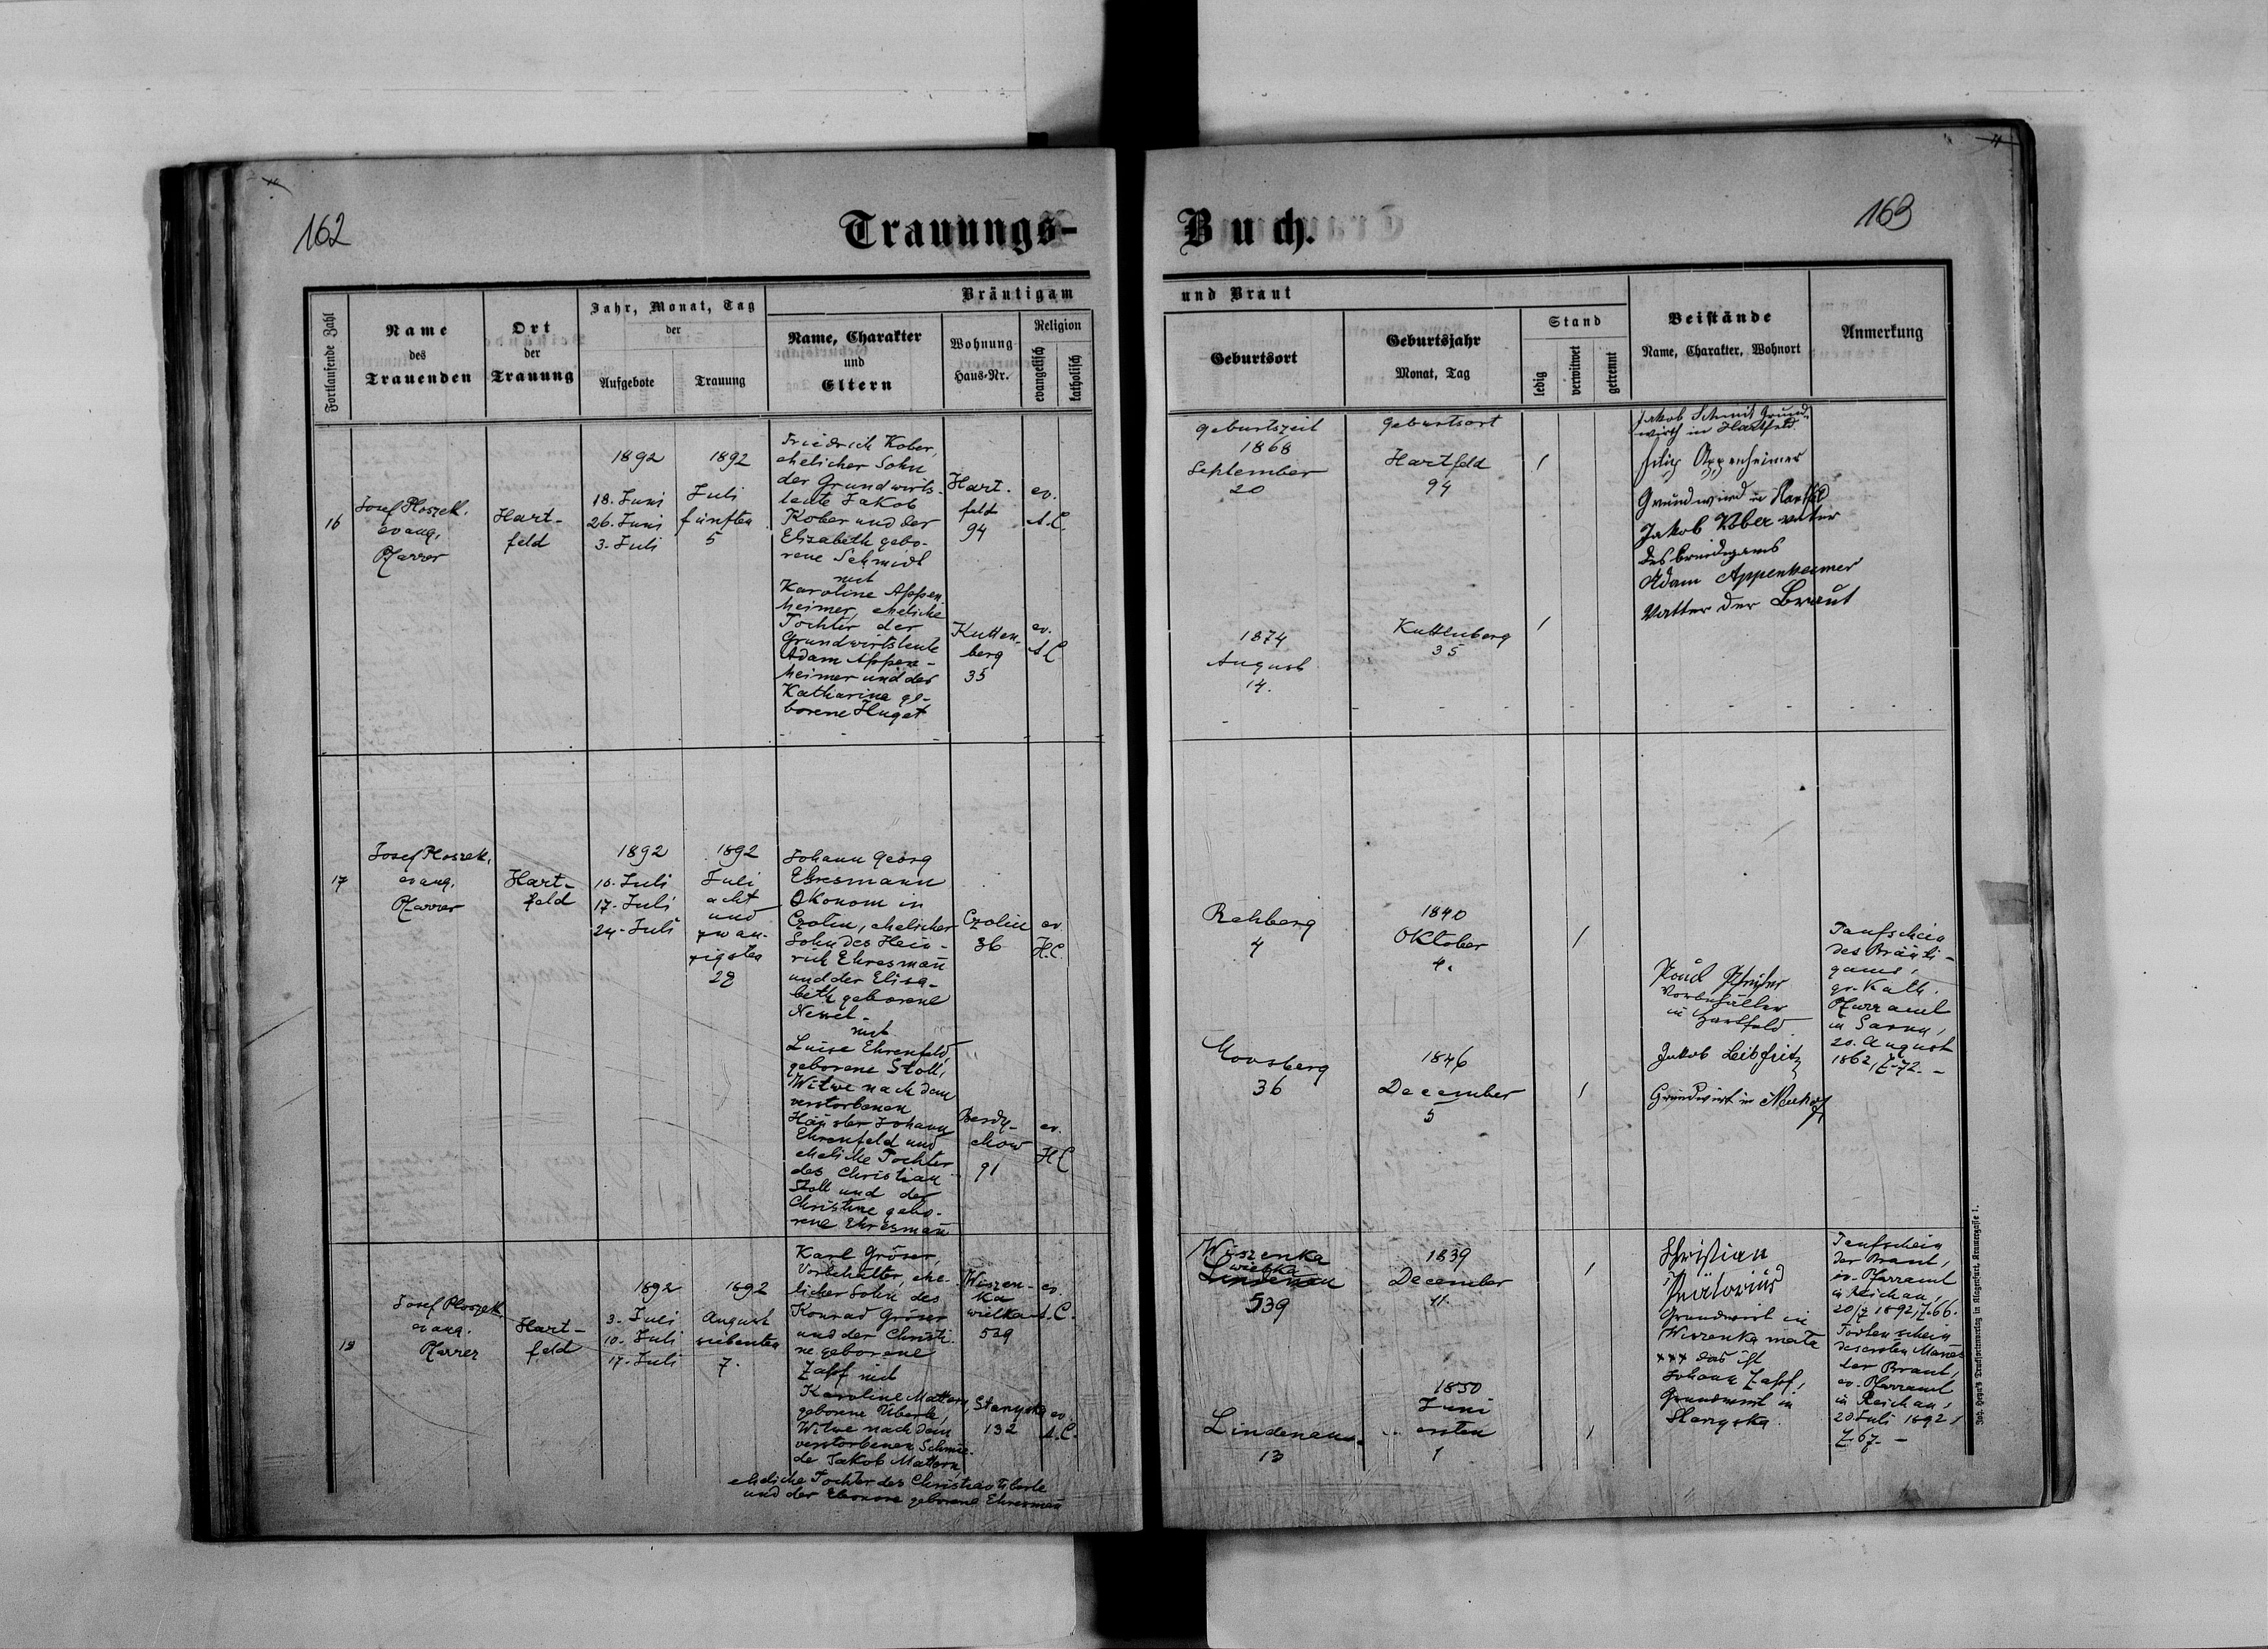 162
Trauungs-
Buch.
163
Fortlaufende Zahl
Name
des
Trauenden
Ort
der
Trauung
Jahr, Monat, Tag
der
Aufgebote
Trauung
Bräutigam
Name, Charakter
und
Eltern
Wohnung
Haus-Nr.
Religion
evangelisch
katholisch
und Braut
Geburtsort
Geburtsjahr
Monat, Tag
Stand
ledig
verwitwet
getrennt
Beistände
Name, Charakter, Wohnort
Anmerkung
16
Josef Ploszek,
evang.
Pfarrer
Hart-
feld
1892
18. Juni
26. Juni
3. Juli
1892
Juli
fünften
5
Friedrich Kober,
ehelicher Sohn
der Grundwirts-
leute Jakob
Kober und der
Elisabeth gebo-
rene Schmidt
mit
Karoline Appen
heimer, eheliche
Tochter der
Grundwirtsleute
Adam Appen-
heimer und der
Katharina ge-
borene Huget
Hart-
feld
94
ev.
A.C.
Kutten-
berg
35
ev.
A.C.
Geburtszeit
1868
September
20
Geburtsort
Hartfeld
94
1874
August
14.
Kuttenberg
35
Jakob Schmit Grund-
wirth in Hartfeld
Filip Appenheimer
Grundwird in Hartfeld
Jakob Kober vater
des breidegams
Adam Appenheimer
Vatter der Braut
17
Josef Ploszek,
evang.
Pfarrer
Hart-
feld
1892
10. Juli
17. Juli
24. Juli
1892
Juli
acht
und
zwan-
zigsten
28
Johann Georg
Ehresmann
Ökonom in
Czolin, ehelicher
Sohn des Hein-
rich Ehresmañ
und der Elisa-
beth geborene
mit
Luise Ehrenfeld,
geborene Stoll,
Witwe nach dem
verstorbenen
Häusler Johann
Ehrenfeld und
eheliche Tochter
des Christian
Stoll und der
Christine gebo-
rene Ehresmañ
Czolin
36
ev.
H.C.
Berdy-
chow
91
ev.
H.C.
Rehberg
4
1840
Oktober
4.
Moosberg
36
1846
December
5
in Hartfeld
Jakob Leibfritz
Grundwirt in
Taufschein
des Bräuti-
gams,
gr. Kath.
Pfarramt
in Sarny,
20. August
1862, Z. 72. -
18
Josef Ploszek
evang.
Pfarrer
Hart-
feld
1892
3. Juli
10. Juli
17. Juli
1892
August
siebenten
7.
Karl Gröser,
Vorbehalter, ehe-
licher Sohn des
Konrad Gröser
und der Christi-
ne geborene
Zapf mit
Karoline Mattern,
geborene Überle,
Witwe nach dem
verstorbenen Schmie-
de Jakob Mattern,
eheliche Tochter des Christian Überle
und der Eleonore geborene Ehresmañ
Wiszen-
ka
wielka
539
ev.
A.C.
Stanyska
132
ev.
A.C.
Wiszenka
wielka
Lindenau
539
1839
December
11.
Lindenau
13
1850
Juni
ersten
1
Christian
Prätorius
Grundwirt in
Wiszenka mala
+++ das ist
Johann Zapf,
Grundwirt in
Stanyska.
Taufschein
der Braut,
ev. Pfarramt
in Reichau,
20/7 1892, Z. 66.
Todtenschein
des ersten Mañes
der Braut,
ev. Pfarramt
in Reichau,
20. Juli 1892,
Z. 67. -
Joh. Heyn's Drucksortenverlag in Klagenfurt, Kramergasse 1.